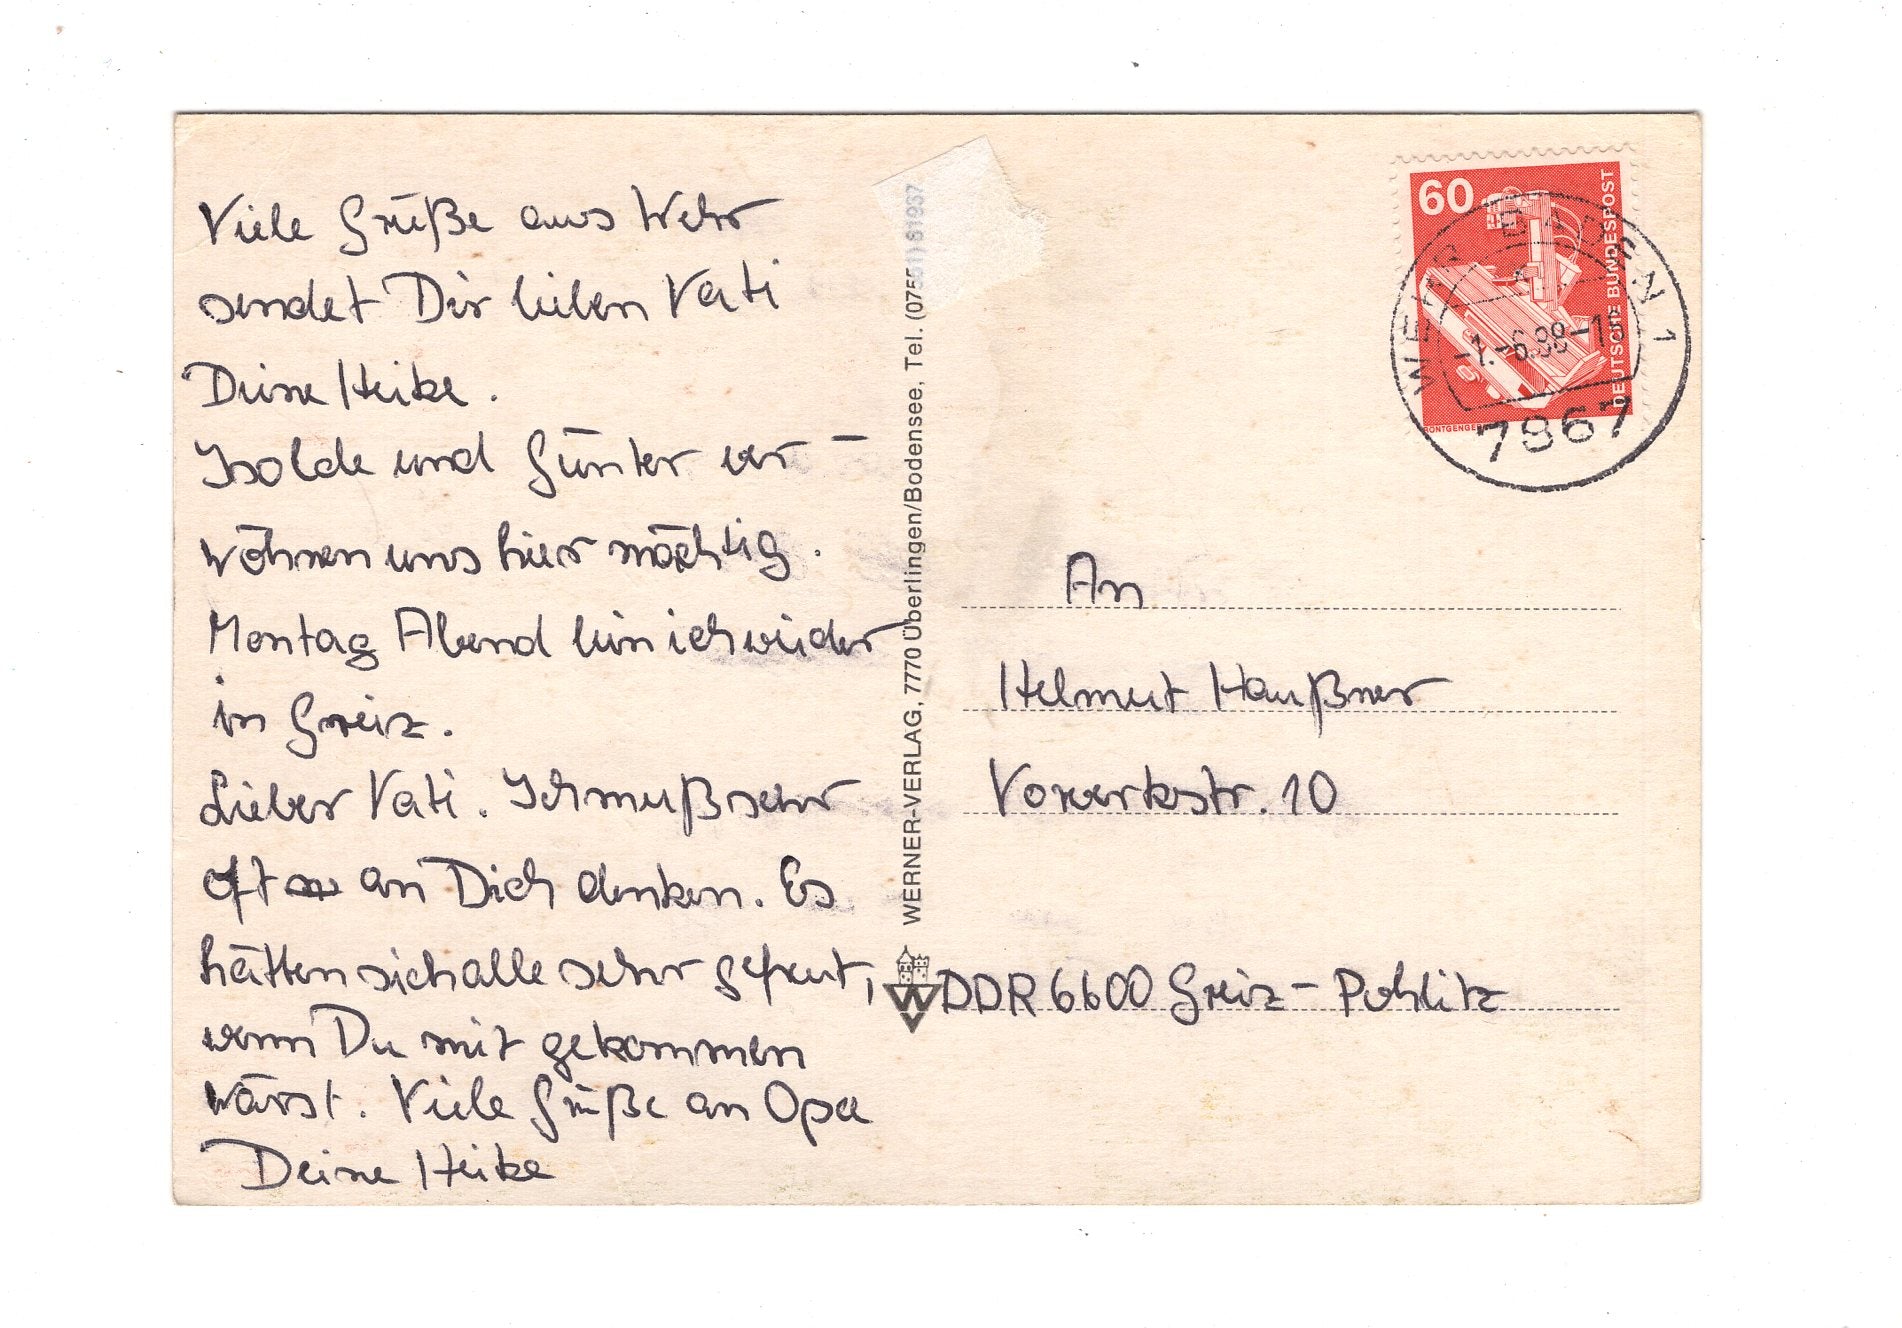 Viele Grüße aus Wehr
sendet Dir lieben Vati
Deine Heike.
Isolde und Günter ver-
wöhnen uns hier mächtig.
Montag Abend bin ich wieder
in Greiz.
Lieber Vati. Ich muß sehr
oft an Dich denken. Es
hätten sich alle sehr gefreut,
wenn Du mit gekommen
wärst. Viele Grüße an Opa
Deine Heike
WERNER-VERLAG, 7770 Überlingen/Bodensee, Tel. (07551) 61937
60
DEUTSCHE BUNDESPOST
WEHR BADEN 1
-1.-6.88-
7867
An
Helmut Haußner
Vorwerkstr. 10
DDR 6600 Greiz-Pohlitz